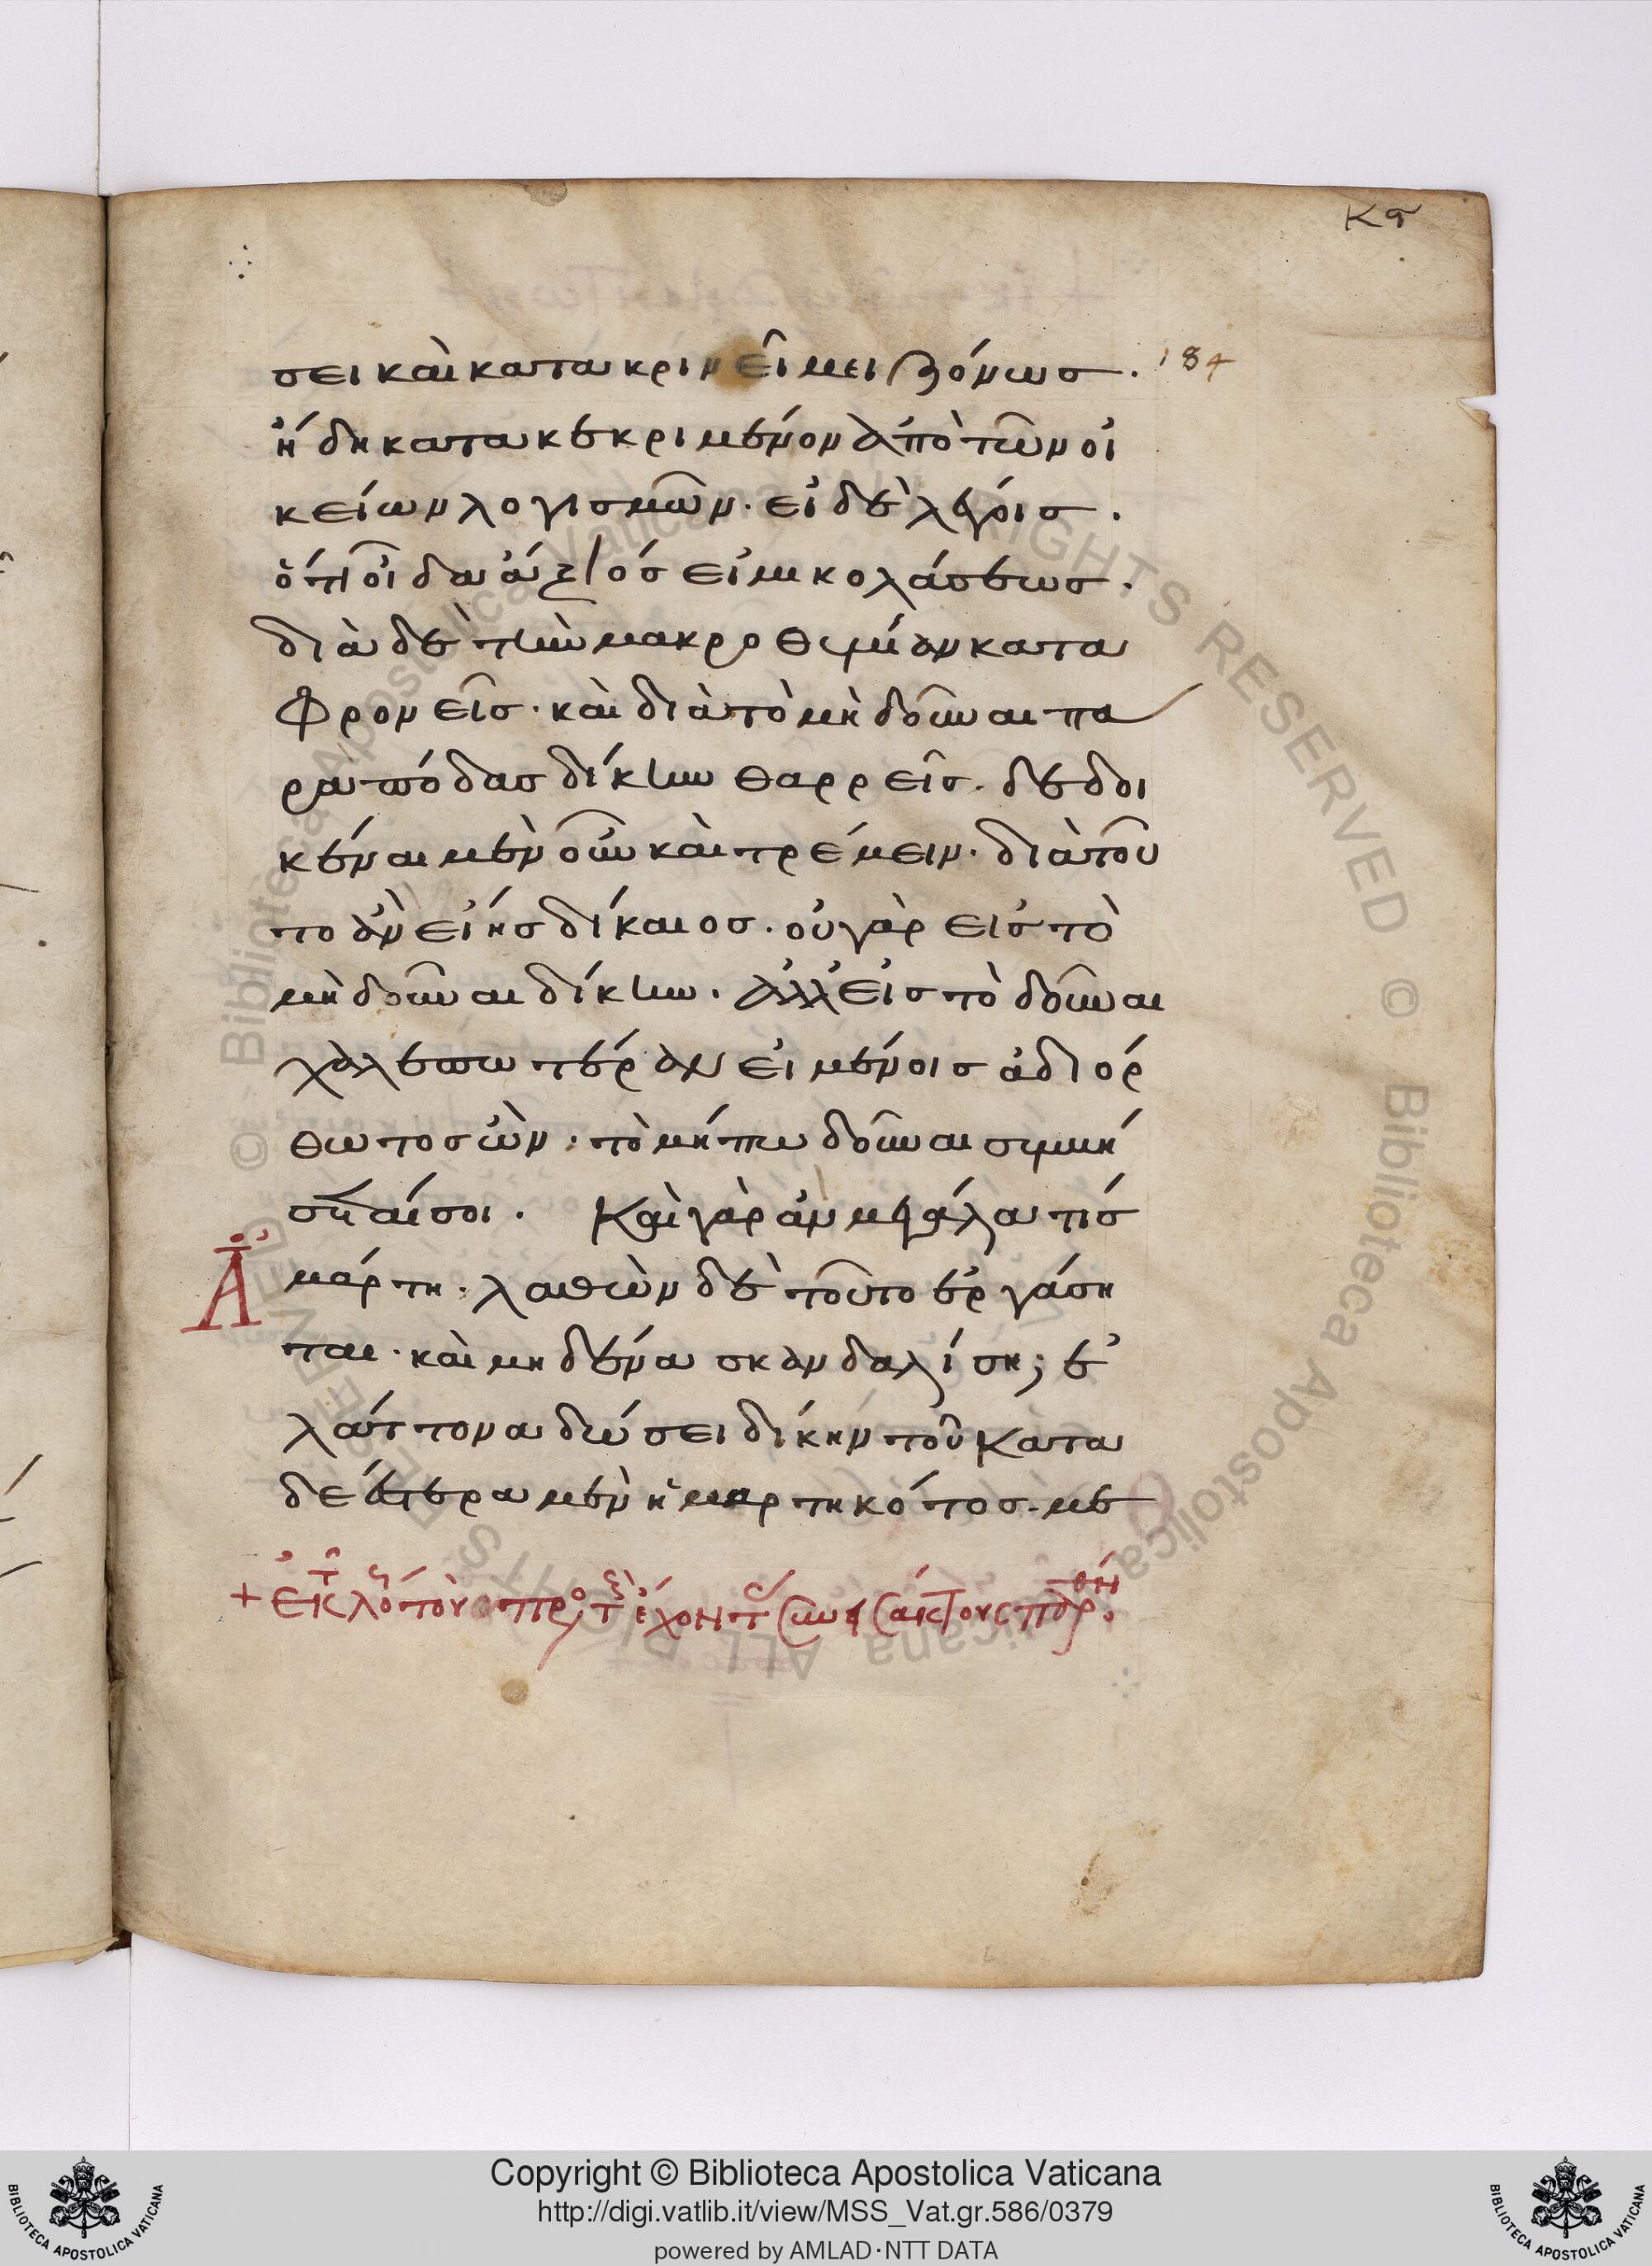 κϛ
184
σει καὶ κατακρινεῖ μειζόνως.
ἤδη κατακεκριμένον ἀπὸ τῶν οἰ
κείων λογισμῶν· εἰ δὲ λέγεις.
ὅτι οἶδα ἄξιός εἰμι κολάσεως.
διὰ δὲ τὴν μακροθυμίαν κατα
φρονεῖς· καὶ διὰ τὸ μὴ δοῦναι πα
ρὰ πόδας δίκην θαρρεῖς. δεδοι
κέναι μὲν οὖν καὶ τρέμειν. διὰ τοῦ
το ἂν εἴης δίκαιος. οὐ γὰρ εἰς τὸ
μὴ δοῦναι δίκην. ἀλλ' εἰς τὸ δοῦναι
χαλεπωτέραν εἰ μένοις ἀδιόρ
θωτος ὢν. τὸ μήπω δοῦναι συμβή
σεταί σοι. Καὶ γὰρ ἂν μεγάλα τίς
ἁμάρτη. λαθὼν δὲ τοῦτο ἐργάση
ται· καὶ μηδένα σκανδαλίση; ἐ
λάττονα δώσει δίκην τοῦ κατα
δεέστερα μὲν ἡμαρτηκότος. με
Copyright © Biblioteca Apostolica Vaticana
http://digi.vatlib.it/view/MSS_Vat.gr.586/0379
powered by AMLAD·NTT DATA
BIBLIOTECA APOSTOLICA VATICANA
BIBLIOTECA APOSTOLICA VATICANA